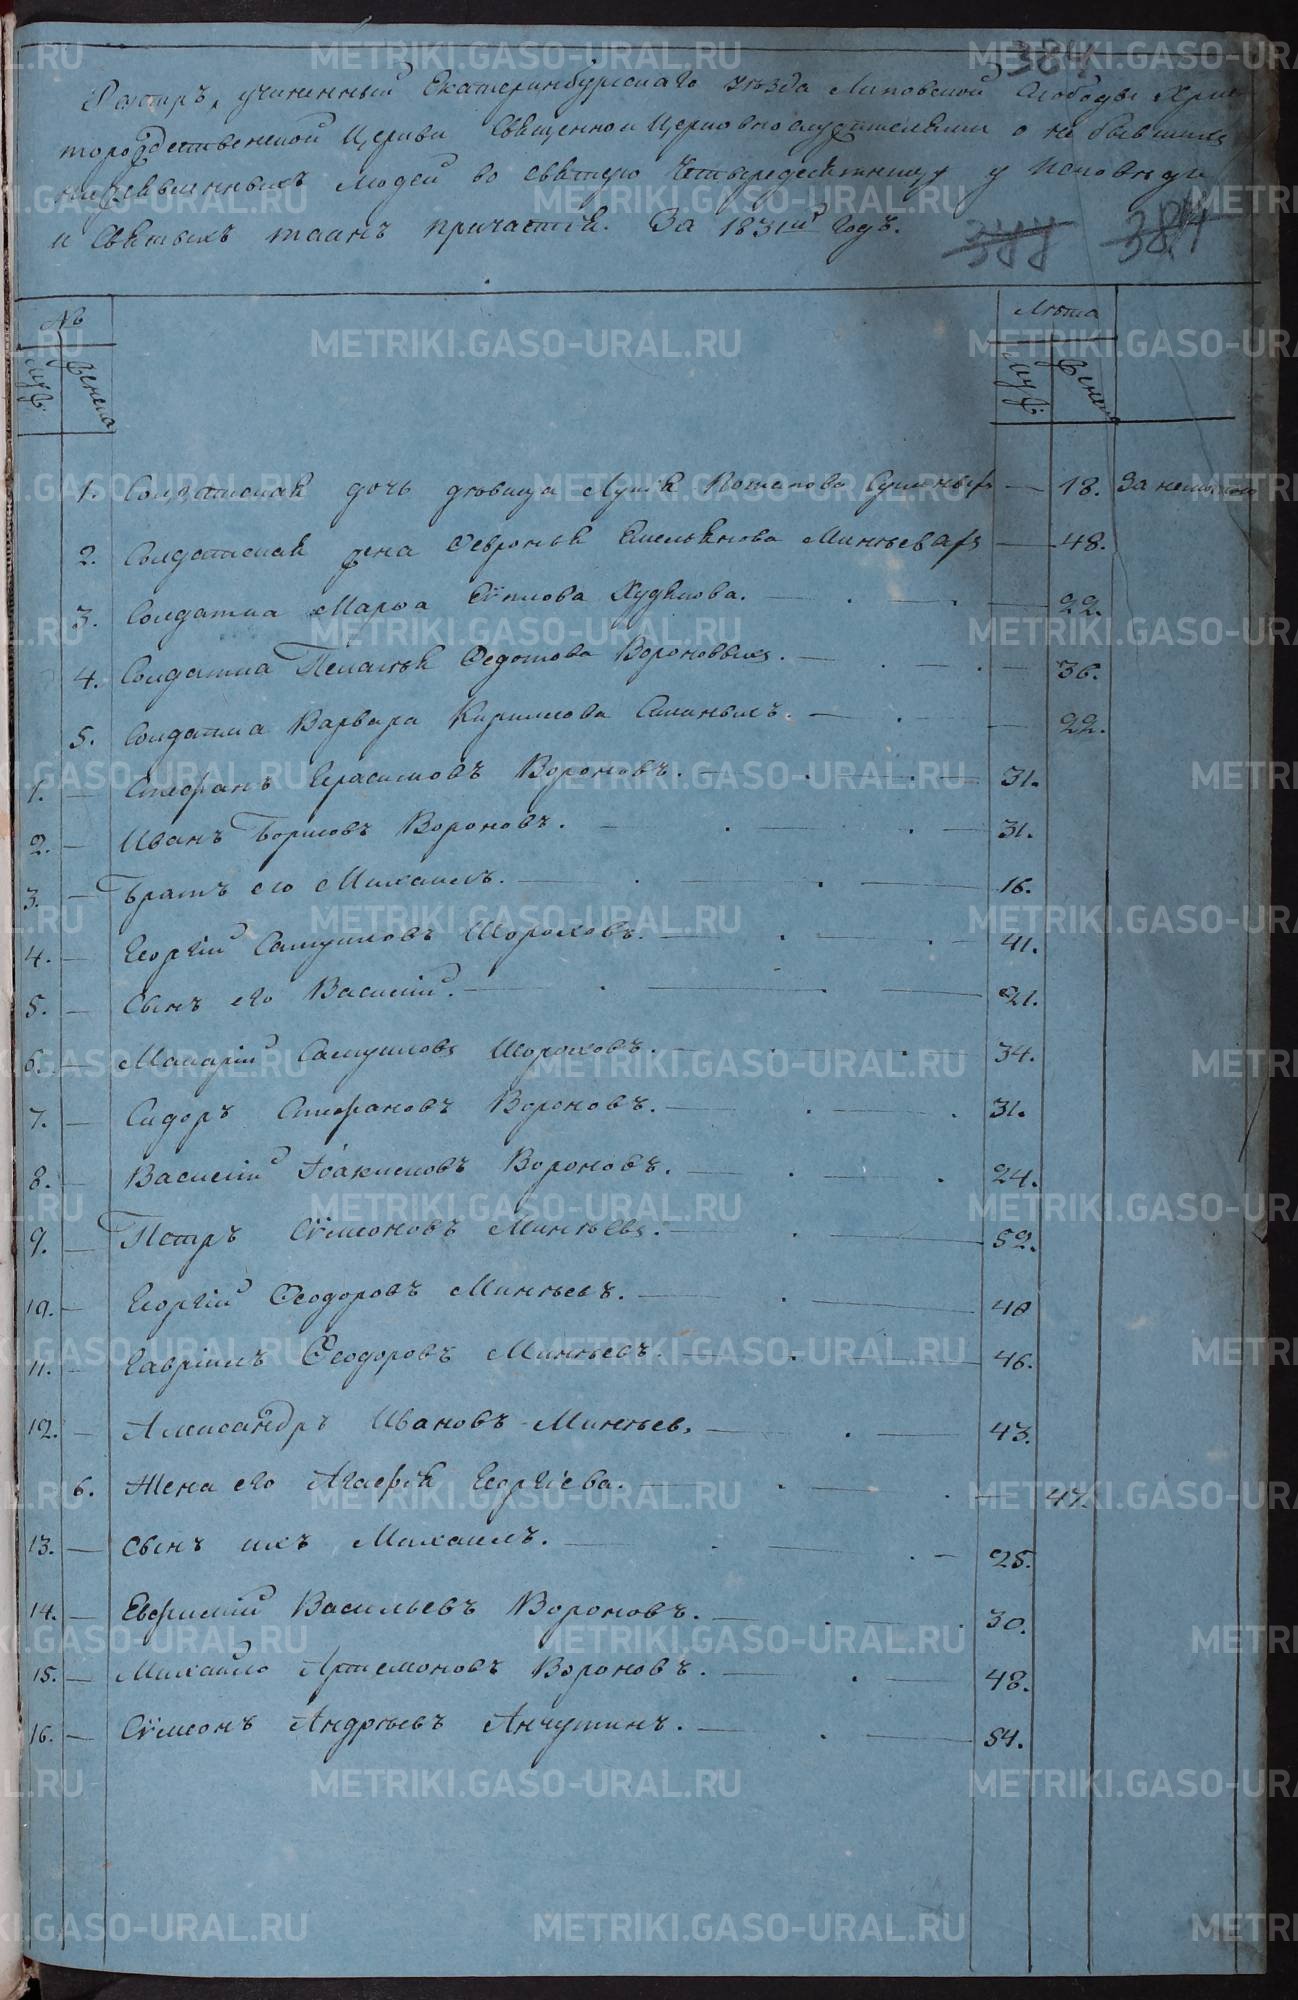 384
Реэстръ, учиненный Екатеринбургскаго уѣзда Липовской Слободы Хрис
торождественской Церкви Священно и Церковнослужителями о не бывшихъ
нижеявленныхъ людей во святую Четыредесятницу у исповѣди
и Святыхъ таинъ причастія. За 1831й Годъ.
377 384
№ Лѣта
Муж: Женска Муж: Женска
1. Солдатская дочь дѣвица Потапова 18. За
2. Солдатская жена Февронья Емельянова Минѣевахъ 48.
3. Солдатка Марѳа Худякова. 22.
4. Солдатка Пелагѣя Ѳедотова Вороновыхъ. 36.
5. Солдатка Варвара Кирилова 22.
1. Стефанъ Герасимовъ Вороновъ. 31.
2. Иванъ Борисовъ Вороновъ. 31.
3. Братъ его Михаилъ. 16.
4. Георгій Самуиловъ Шороховъ. 41.
5. Сынъ его Василій. 21.
6. Макарій Самуиловъ Шороховъ. 34.
7. Сидоръ Стефановъ Вороновъ. 31.
8. Василій Іоакимовъ Вороновъ. 24.
9. Петръ Сѵмеоновъ Минѣевъ. 52.
10. Георгій Ѳеодоровъ Минѣевъ. 40
11. Гавріилъ Ѳеодоровъ Минѣевъ. 46.
12. Александръ Ивановъ Минѣевъ. 43.
6. Жена его Агафія Георгіева. 47.
13. Сынъ ихъ Михаилъ. 25.
14. Евфимій Васильевъ Вороновъ. 30.
15. Михайло Артемоновъ Вороновъ. 48.
16. Сѵмеонъ Андрѣевъ Анчутинъ. 54.
METRIKI.GASO-URAL.RU